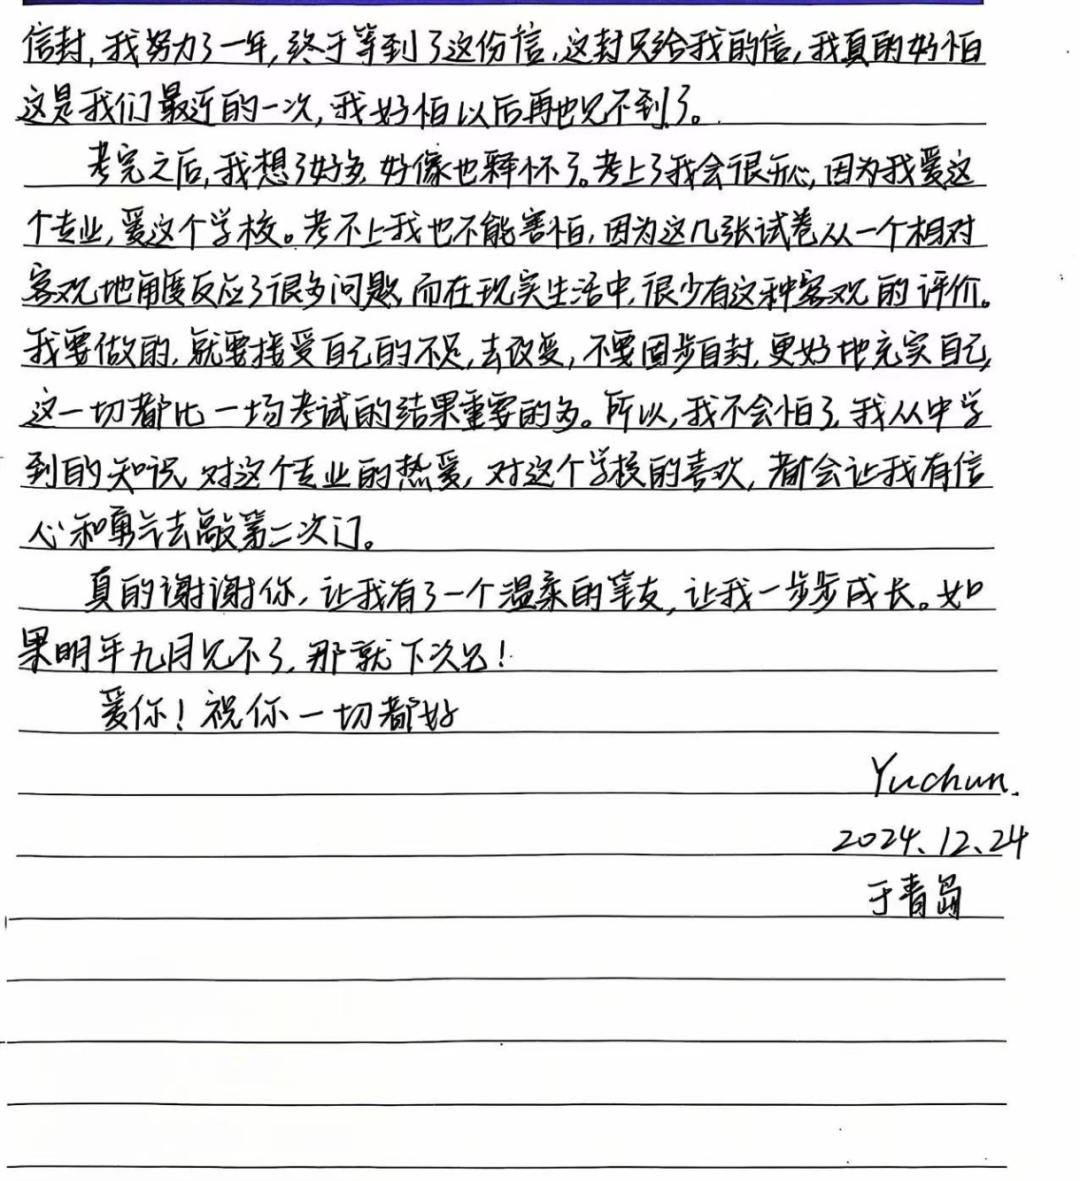 信封,我努力了一年,终于等到了这份信,这封只给我的信,我真的好怕
这是我们最近的一次,我好怕以后再也见不到了。
考完之后,我想了好多,好像也释怀了。考上了我会很开心,因为我爱这
个专业,爱这个学校。考不上我也不能害怕,因为这几张试卷从一个相对
客观地角度反应了很多问题,而在现实生活中,很少有这种客观的评价。
我要做的,就要接受自己的不足,去改变,不要固步自封,更好地充实自己,
这一切都比一场考试的结果重要的多。所以,我不会怕了,我从中学
到的知识,对这个专业的热爱,对这个学校的喜欢,都会让我有信
心和勇气去敲第二次门。
真的谢谢你,让我有了一个温柔的笔友,让我一步步成长。如
果明年九月见不了,那就下次见!
爱你!祝你一切都好
Yuchun.
2024.12.24
于青岛